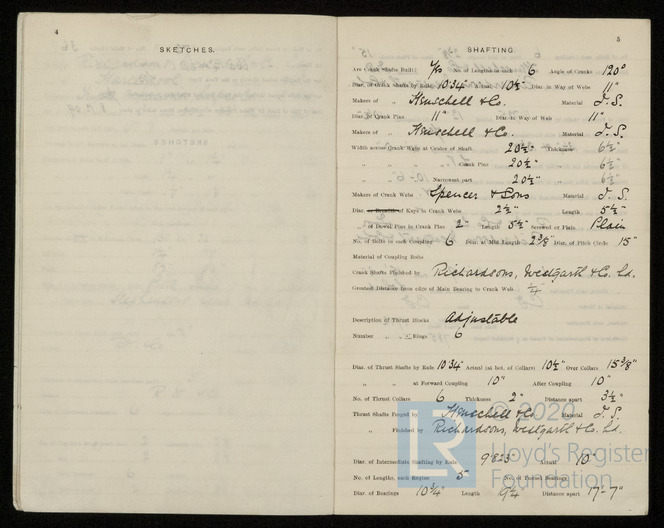 4
SKETCHES.
5
SHAFTING.
Are Crank Shafts Built? Yes No. of Lengths in each 6 Angle of Cranks 120°
Diar. of Crank Shafts by Rule 10.34" Actual 10½" Diar. in Way of Webs 11"
Makers of " Material I. S.
Diar. of Crank Pins 11" Diar. in Way of Web 11"
Makers of " Material I. S.
Width across Crank Webs at Centre of Shaft 20½" Thickness 6½"
" " " Crank Pins 20½" " 6½"
" " Narrowest part 20½" " 6½"
Makers of Crank Webs Spencer & Sons Material I. S.
Diar. or Breadth of Keys in Crank Webs 2½" Length 5½"
" of Dowel Pins in Crank Pins 2" Length 5½" Screwed or Plain Plain
No. of Bolts in each Coupling 6 Diar. at Mid Length 2⅜" Diar. of Pitch Circle 15"
Material of Coupling Bolts
Crank Shafts Finished by Richardsons, Westgarth & Co. Ld.
Greatest Distance from edge of Main Bearing to Crank Web ¼"
Description of Thrust Blocks Adjustable
Number " " Rings 6
Diar. of Thrust Shafts by Rule 10.34" Actual (at bot. of Collars) 10½" Over Collars 15⅜"
" " at Forward Coupling 10" After Coupling 10"
No. of Thrust Collars 6 Thickness 2" Distance apart 3½"
Thrust Shafts Forged by Material I. S.
" Finished by Richardsons, Westgarth & Co. Ld.
Diar. of Intermediate Shafting by Rule 9.823" Actual 10"
No. of Lengths, each Engine 5 No. of Tunnel Bearings
Diar. of Bearings 10¾" Length 9¼ Distance apart 17'-7"
© 2020
LR
Lloyd's Register
Foundation